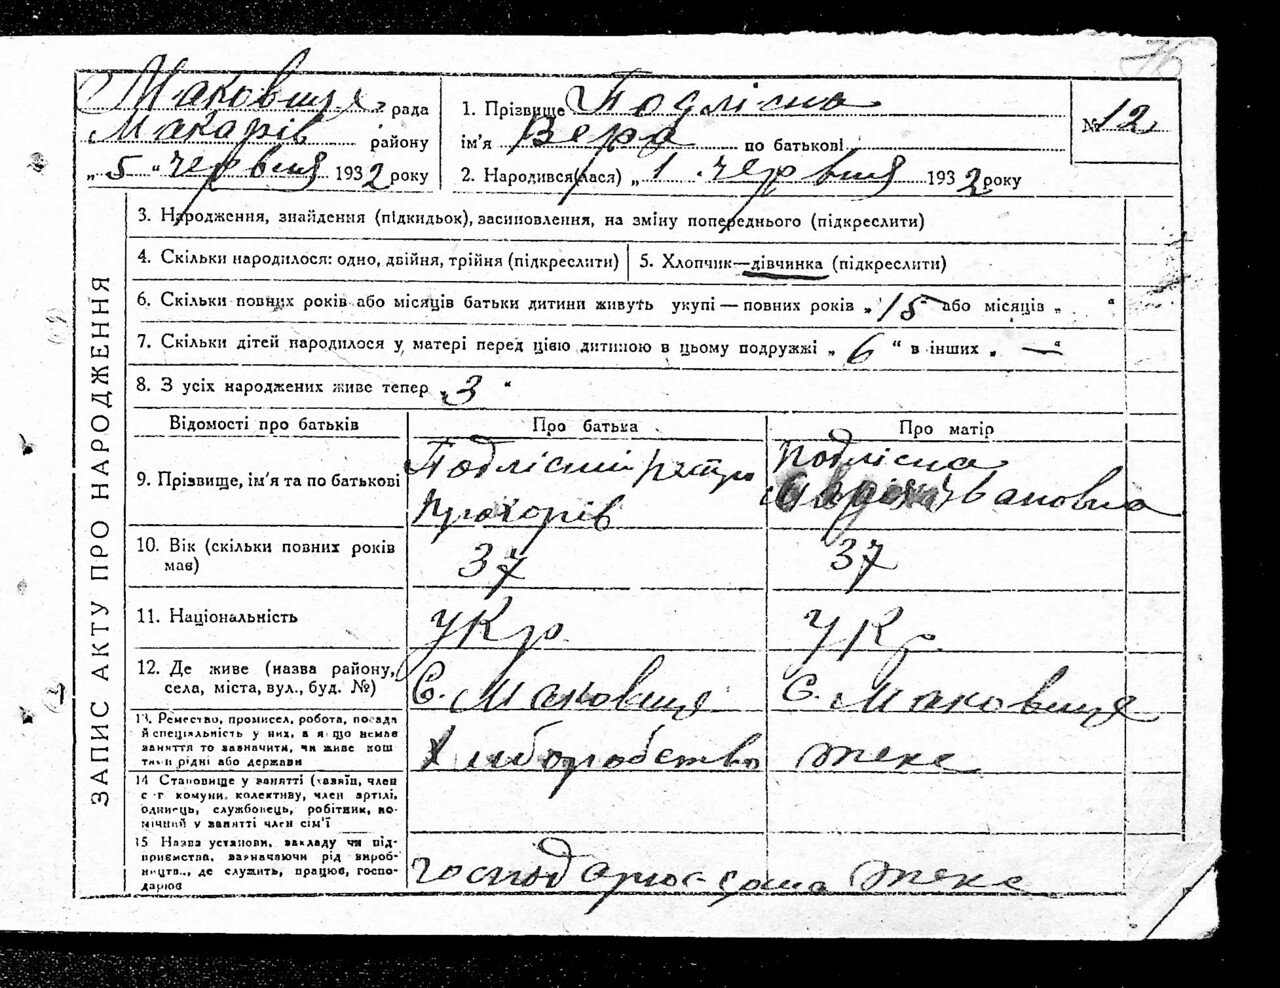 76
Маковище рада
Макарів району
„ 5 " червня 1932 року
1. Прізвище Подлісна
ім'я Вера по батькові
2. Народився(лася) „ 1 . червня 1932 року
№ 12
ЗАПИС АКТУ ПРО НАРОДЖЕННЯ
3. Народження, знайдення (підкидьок), засиновлення, на зміну попереднього (підкреслити)
4. Скільки народилося: одно, двійня, трійня (підкреслити)
5. Хлопчик—дівчинка (підкреслити)
6. Скільки повних років або місяців батьки дитини живуть укупі — повних років „ 15 " або місяців „ "
7. Скільки дітей народилося у матері перед цією дитиною в цьому подружжі „ 6 " в інших „ — "
8. З усіх народжених живе тепер „ 3 "
Відомості про батьків
Про батька
Про матір
9. Прізвище, ім'я та по батькові
Подлісний Петро
Прохорів
Подлісна
Івановна
10. Вік (скільки повних років
має)
37
37
11. Національність
укр.
укр.
12. Де живе (назва району,
села, міста, вул., буд. №)
С. Маковище
С. Маковище
13. Ремество, промисел, робота, посада
й спеціяльність у них, а як що немає
заняття то зазначити, чи живе кош
тами рідні або держави
Хлиборобство
теже
14 Становище у занятті (хазяїн, член
с-г комуни, колективу, член артілі,
одинець, службовець, робітник, по-
мічний у занятті член сім'ї
15 Назва установи, закладу чи під-
приємства, зазначаючи рід вироб-
ництв., де служить, працює, госпо-
дарює
господарює
теже